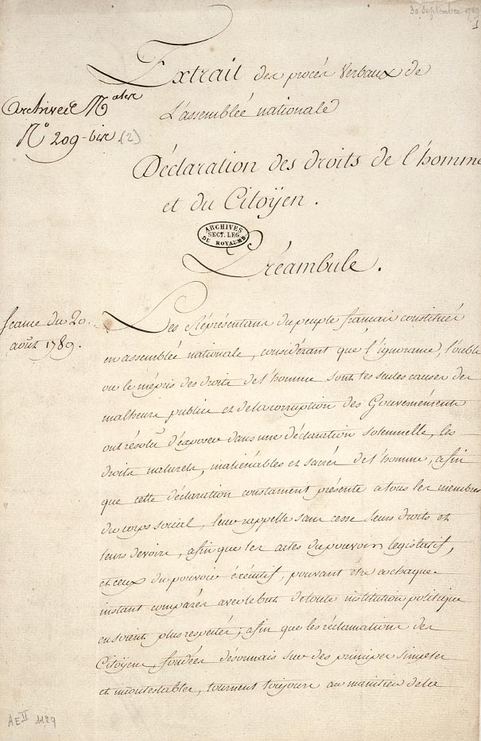 30 Septembre 1789
1
Extrait des procés Verbaux de
L'assemblée nationale
Archives Nales
N° 209-bis (2)
Déclaration des droits de l'homme
et du Citoÿen.
ARCHIVES
SECT. LEG.
DU ROYAUME
Préambule.
Seance du 20.
août 1789.
Les Représentans du peuple francais constitués
en assemblée nationale, considérant que l'ignorance, l'oubli
ou le mépris des droits de l'homme sont les seules causes des
malheurs publics et de la corruption des Gouvernements
ont résolu d'exposer dans une déclaration solemnelle, les
droits naturels, inaliénables et sacrés de l'homme, afin
que cette déclaration constament présente a tous les membres
du corps social, leur rappelle sans cesse leurs droits et
leurs devoirs, afin que les actes du pouvoir legislatif,
et ceux du pouvoir éxécutif, pouvant être a chaque
instant comparés avec le but de toute institution politique
en soient plus respectés; afin que les réclamations des
Citoÿens, fondées désormais sur des principes simples
et incontestables, tournent toujours au maintien de la
AE II 1129